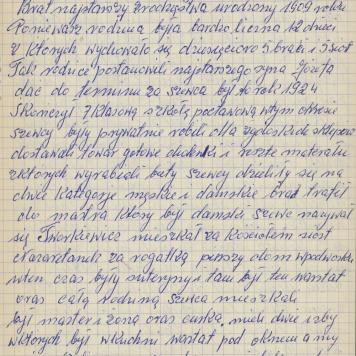 Brat najstarszy z rodzeństwa urodzony 1909 roku
Ponieważ rodzina była bardzo liczna 12 dzieci
z których wychowało się dziesięcioro 5 braci i 5 sióst
Tak rodzice postanowili najstarszego syna Józefa
dać do terminu za szewca był to rok 1924
Skończył 7 klasową szkołę podstawową w tym okresie
szewcy były prywatnie robili dla żydoskich sklepów
dostawali towar gotowe cholewki i resztę materiału
z których wyrabiali buty szewcy dzielity się na
dwie kategorje męskie i damskie brat trafił
do majstra który był damski szewc nazywał
się Tworkiewicz mieszkał za Kościołem
za rogatką pierszy dom w podwórku
w ten czas były suteryny i tam był ten warstat
oraz całą rodziną szewca mieszkali
był master i żona oraz curka, mieli dwie izby
w których był w kuchni warstat pod oknem a my